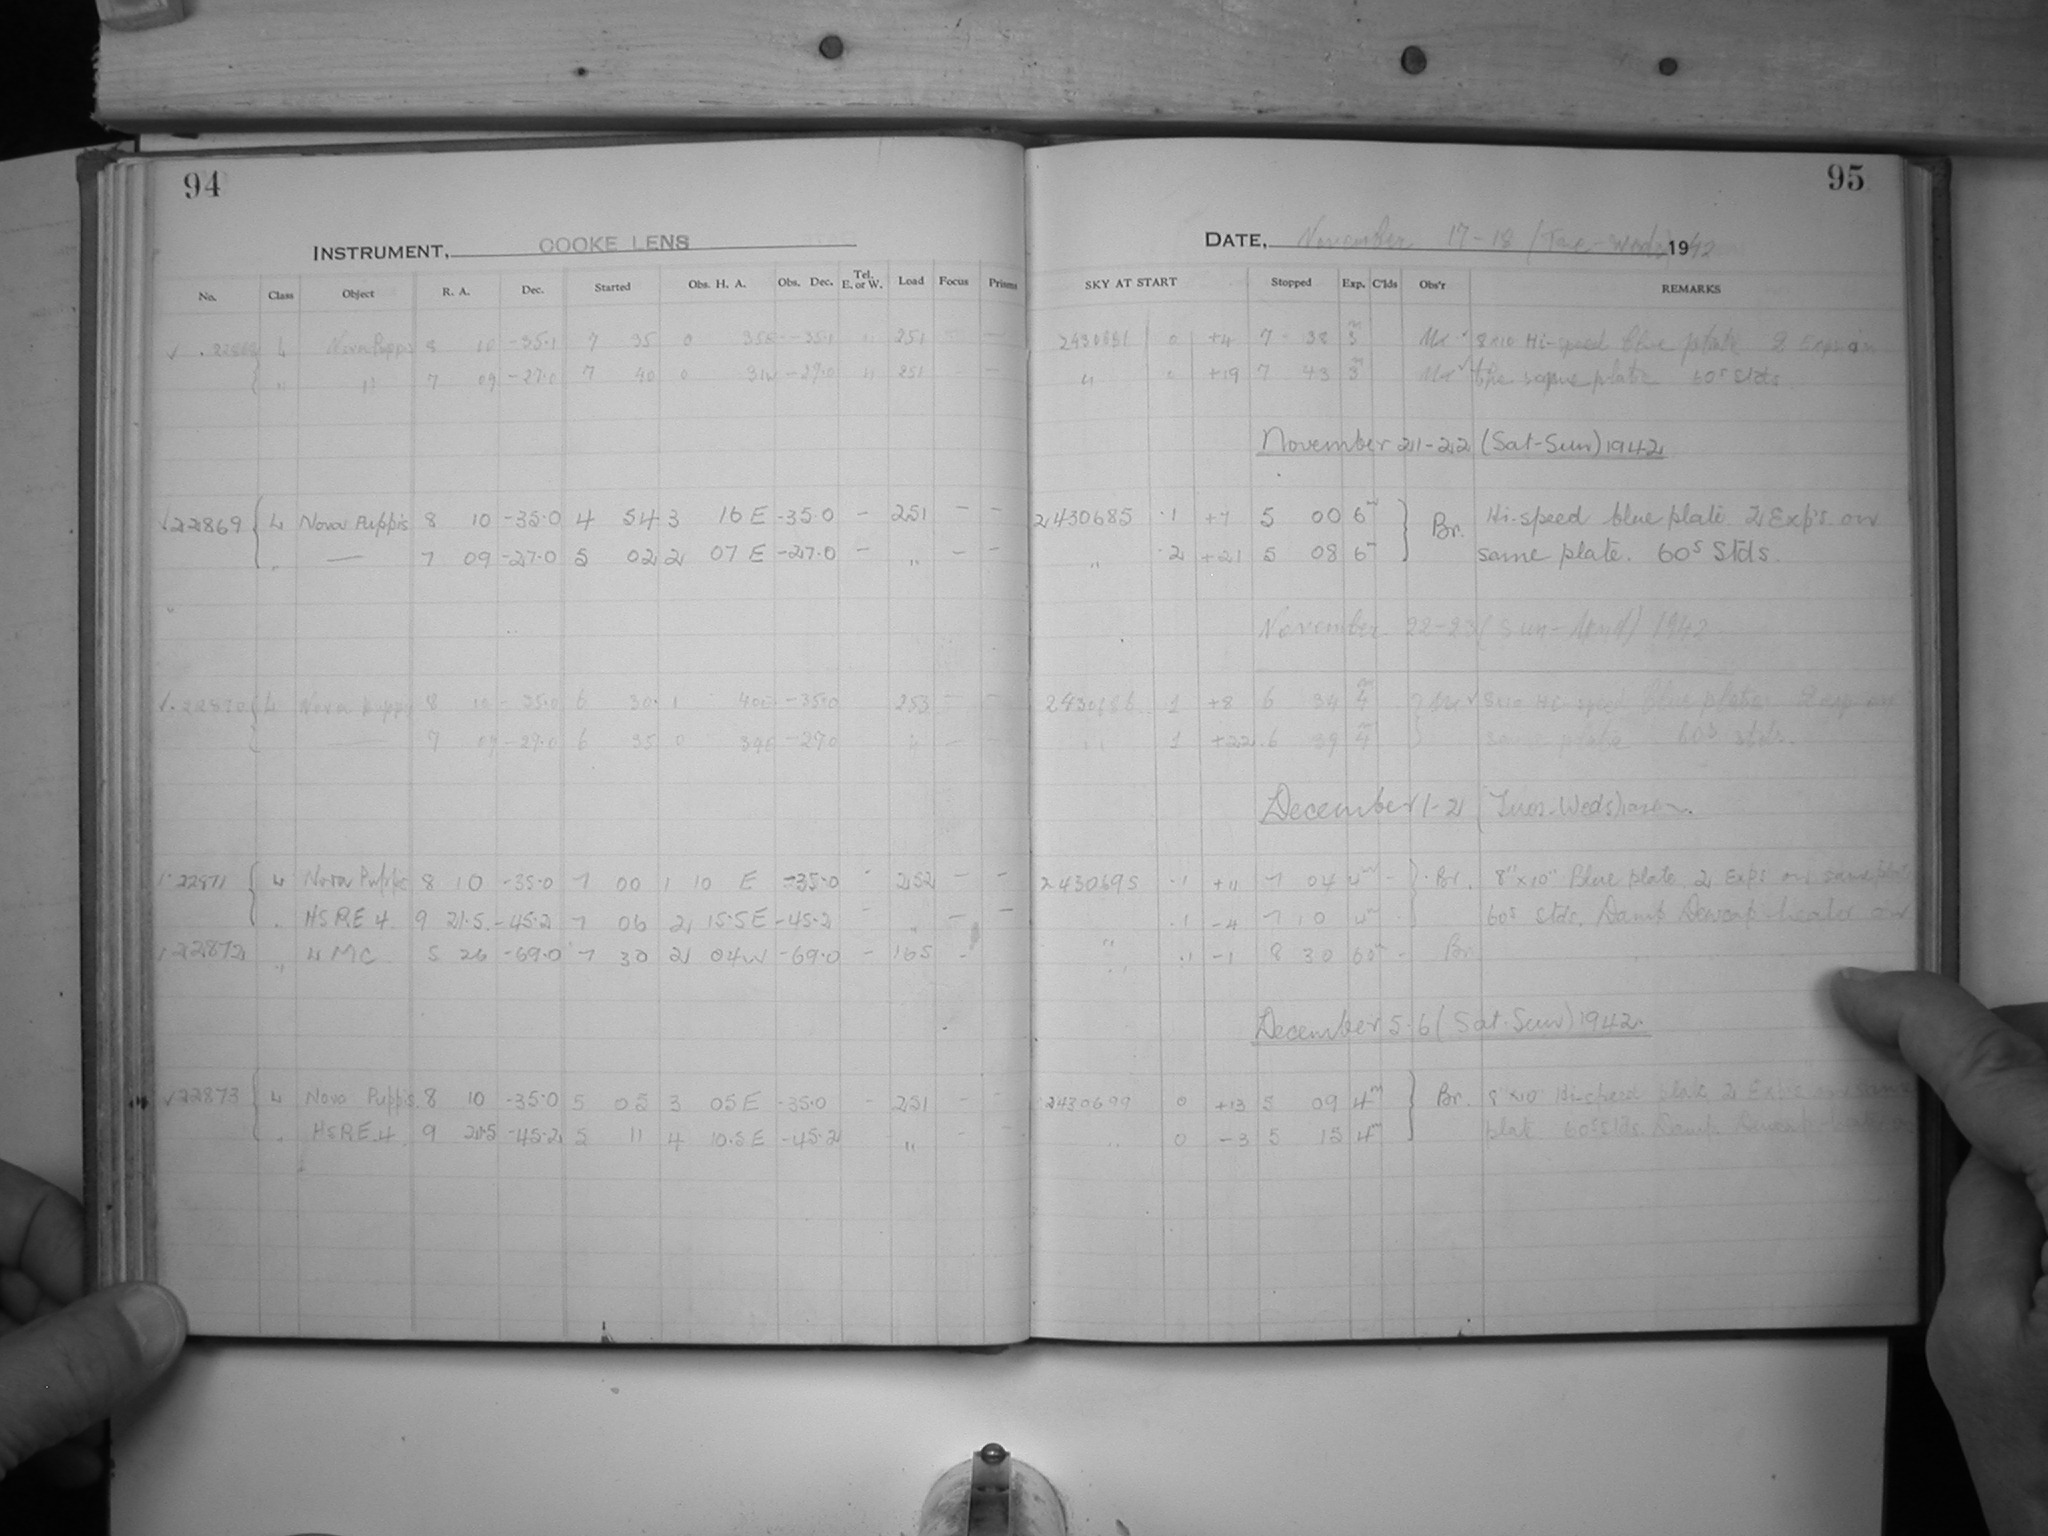 94
INSTRUMENT, COOKE LENS
No. Class Object R. A. Dec. Started Obs. H. A. Obs. Dec. Tel. E. or W. Load Focus Prisms
L Nova Pupp 8 10 -35.1 7 35 0 35E -35.1 " 251 — —
" " 7 09 -27.0 7 40 0 31W -27.0 " 251 — —
22869 L Nova Puppis 8 10 -35.0 4 54 3 16 E -35.0 — 251 — —
" — 7 09 -27.0 5 02 2 07 E -27.0 — " — —
22870 L Nova Puppis 8 10 -35.0 6 30 1 40E -35.0 253 — —
— 7 09 -27.0 6 35 0 39E -27.0 " — —
22871 L Nova Puppis 8 10 -35.0 7 00 1 10 E -35.0 - 252 — —
" HSRE 4. 9 21.5 -45.2 7 06 2 15.5E -45.2 — " — —
22872 " LMC. 5 26 -69.0 7 30 2 04W -69.0 — 165 -
22873 L Nova Puppis 8 10 -35.0 5 05 3 05E -35.0 - 251 - -
" HSRE 4. 9 21.5 -45.2 5 11 4 10.5E -45.2 " - -
95
DATE, November 17-18 (Tue-Weds) 1942
SKY AT START Stopped Exp. C'lds Obs'r REMARKS
2430681 0 +4 7 38 3m 8x10 Hi-speed blue plate 2 Exp on
" 0 +19 7 43 3m the same plate 60s Stds.
November 21-22 (Sat-Sun) 1942
2430685 .1 +7 5 00 6m Br. Hi-speed blue plate. 2 Exp's on
" .2 +21 5 08 6m same plate. 60s Stds.
November 22-23 (Sun-Mond) 1942
2430686 1 +8 6 34 4m 8x10 Hi-speed Blue plate 2 exp on
" 1 +22 6 39 4m same plate 60s stds.
December 1-2 (Tues-Weds)
2430695 .1 +11 7 04 4m - Br. 8"x10" Blue plate 2 Exps on same plate
" .1 -4 7 10 4m 60s Stds. Damp Dewcap-heater on
" .1 -1 8 30 60m - Br
December 5-6 (Sat-Sun) 1942.
2430699 0 +13 5 09 4m Br. 8"x10" Hi-speed plate 2 Exps on same
" 0 -3 5 15 4m plate. 60s Stds. Damp. Dewcap-heater